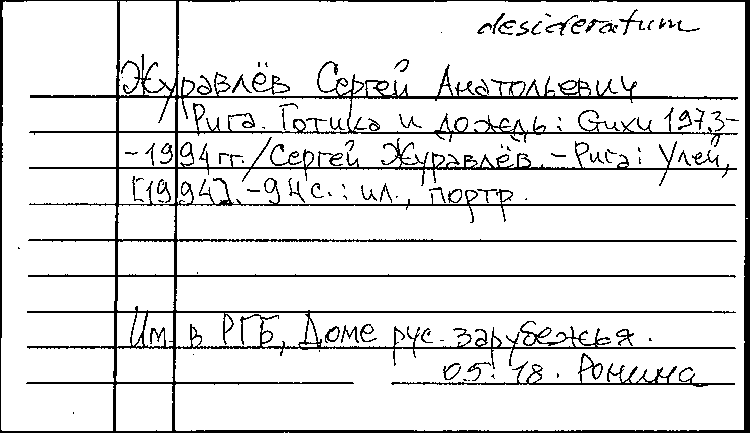 desideratum
Журавлёв Сергей Анатольевич
Рига. Готика и дождь: Стихи 1973-
-1994 гг. / Сергей Журавлёв. - Рига: Улей,
[1994]. - 94 с.: ил., портр.
Им. в РГБ, Доме рус. зарубежья.
05. 18. Ронина